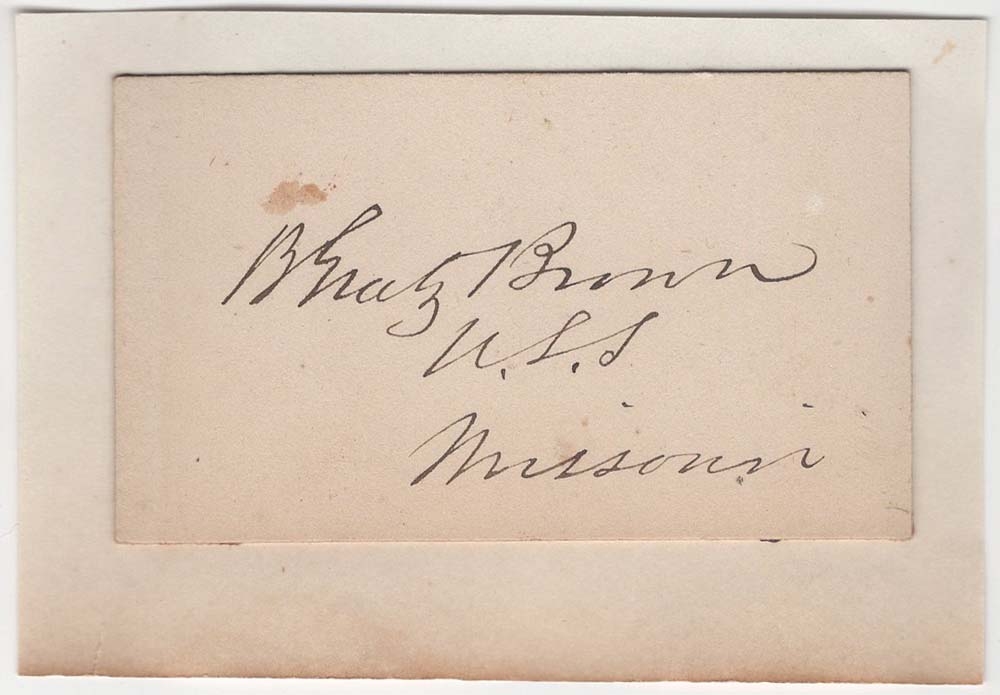 B Gratz Brown
U.S.S
Missouri